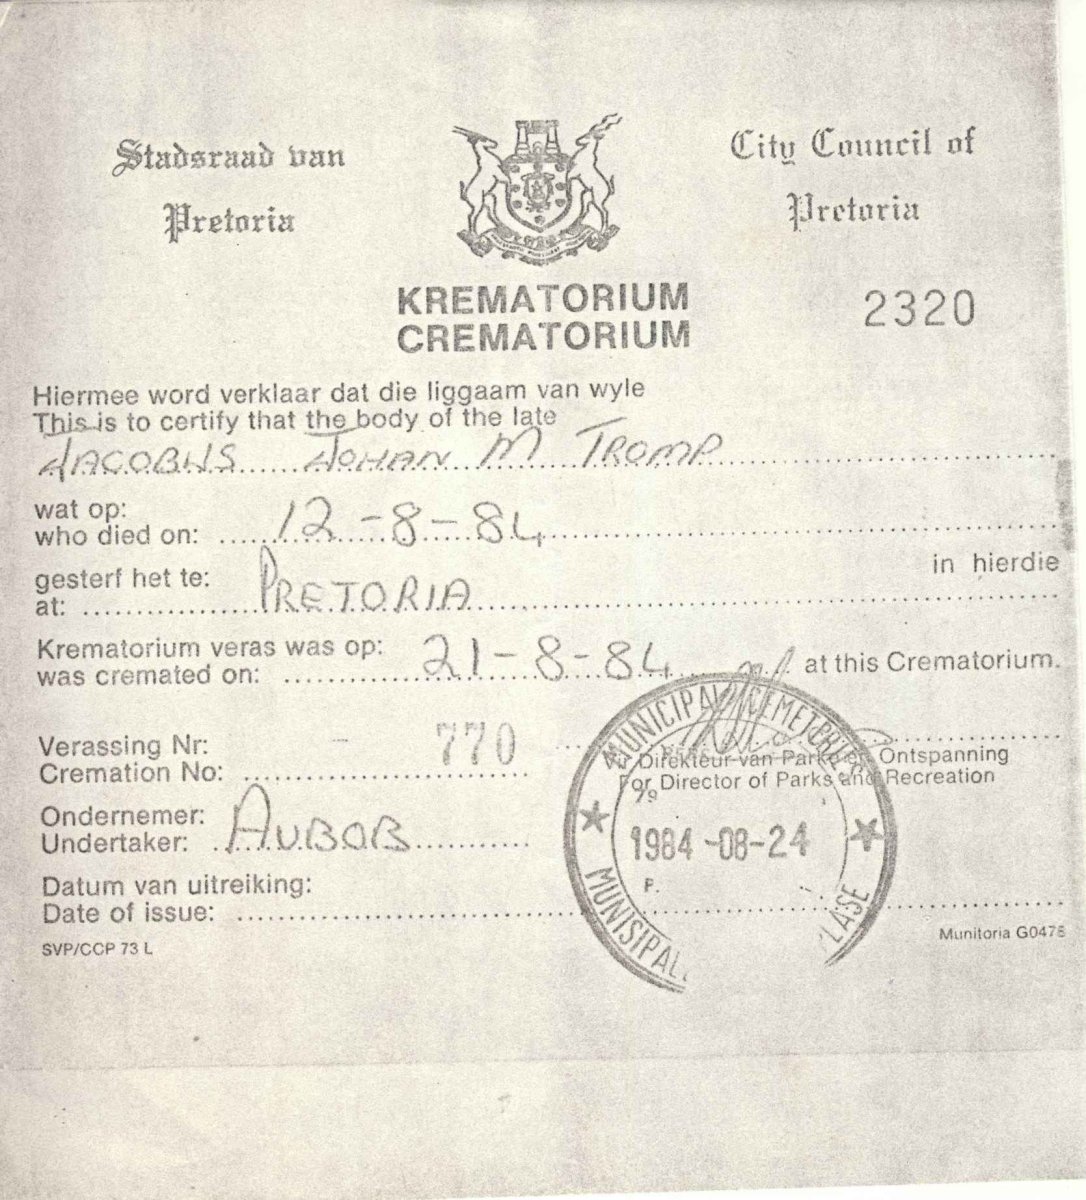 Stadsraad van
Pretoria
City Council of
Pretoria
KREMATORIUM
CREMATORIUM
2320
Hiermee word verklaar dat die liggaam van wyle
This is to certify that the body of the late
JACOBUS JOHAN M TROMP
wat op:
who died on: 12-8-84
gesterf het te: in hierdie
at: PRETORIA
Krematorium veras was op:
was cremated on: 21-8-84 at this Crematorium.
Verassing Nr:
Cremation No: 770
Direkteur van Parke en Ontspanning
For Director of Parks and Recreation
Ondernemer:
Undertaker: AVBOB
Datum van uitreiking:
Date of issue:
MUNICIPAL CEMETERIES
1984-08-24
P.
MUNISIPALE
SVP/CCP 73 L
Munitoria G0478